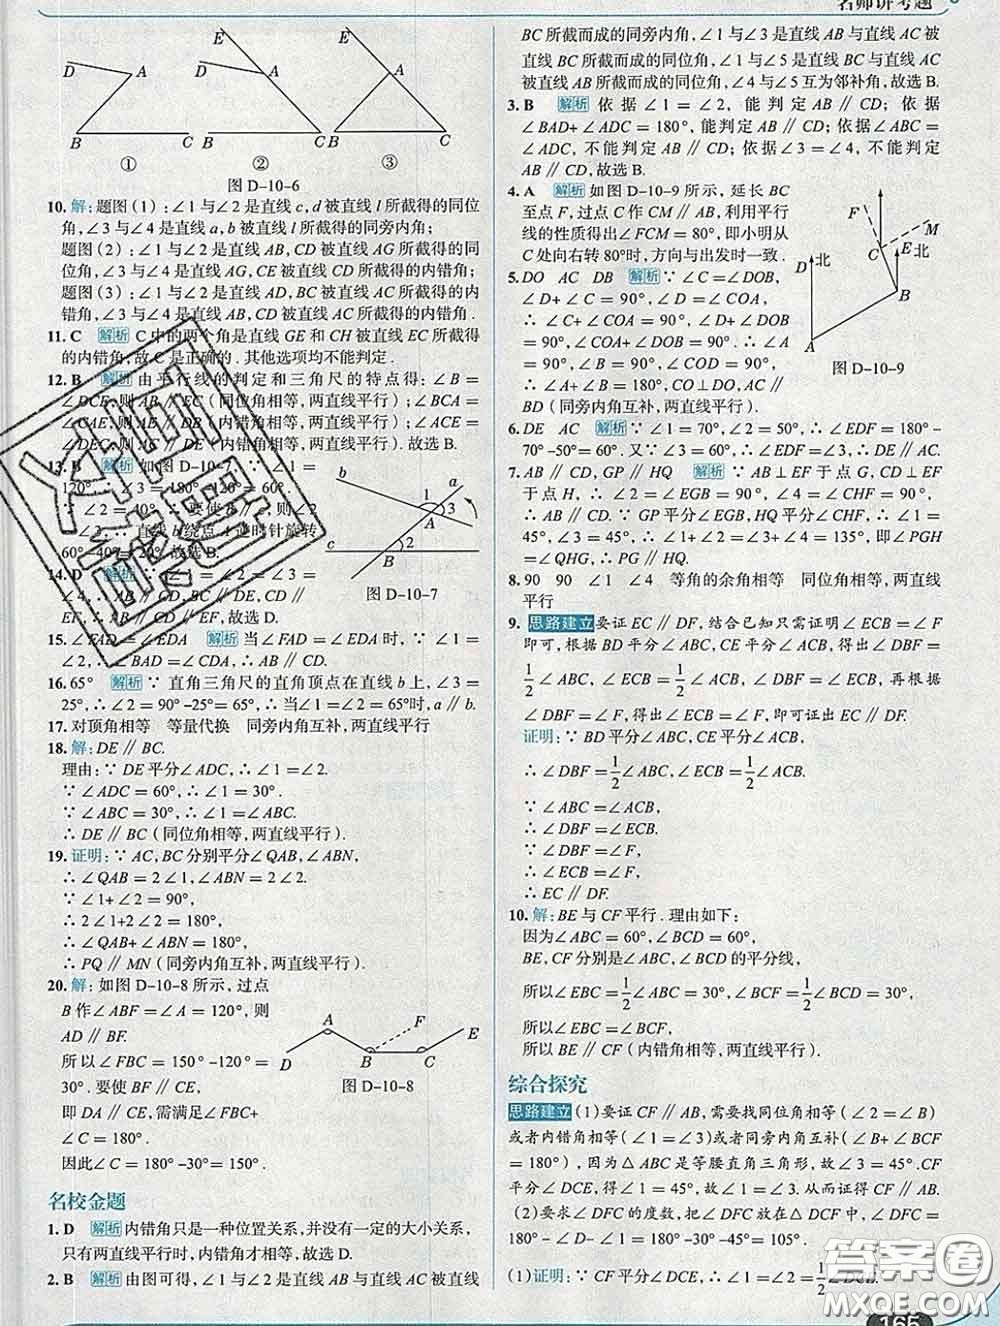 名师讲考题
E
D
A
B
C
①
E
D
A
B
C
②
E
D
A
B
C
③
图 D-10-6
10. 解:题图(1):∠1与∠2是直线c,d被直线l所截得的同位
角,∠3与∠4是直线a,b被直线l所截得的同旁内角;
题图(2):∠1与∠2是直线AB,CD被直线AG所截得的同
位角,∠3与∠4是直线AG,CE被直线CD所截得的内错角;
题图(3):∠1与∠2是直线AD,BC被直线AC所截得的内
错角,∠3与∠4是直线AB,CD被直线AC所截得的内错角.
11. C 解析 C中的两个角是直线GE和CH被直线EC所截得
的内错角,故C是正确的.其他选项均不能判定.
12. B 解析 由平行线的判定和三角尺的特点得:∠B=
∠DCE,则AB∥EC(同位角相等,两直线平行);∠BCA=
∠CAE,则AE∥DB(内错角相等,两直线平行);∠ACE=
∠DEC,则AC∥DE(内错角相等,两直线平行).故选B.
13. B 解析 如图D-10-7,∵∠1=
120°,∴∠3=180°-120°=60°.
∵∠2=40°,∴要使b∥,则∠2
∴直线b绕点A逆时针旋转
60°-40°=20°.故选B.
b
a
1
3
A
2
c
B
图 D-10-7
14. D 解析 ∵∠1=∠2,∠3=
∠4,∴AB∥CD,CD∥
EF,∴AB∥CD∥EF,故选D.
15. ∠FAD=∠EDA 解析 当∠FAD=∠EDA时,∵∠1=
∠2,∴∠BAD=∠CDA,∴AB∥CD.
16. 65° 解析 ∵直角三角尺的直角顶点在直线b上,∠3=
25°,∴∠2=90°-25°=65°,∴当∠1=∠2=65°时,a∥b.
17. 对顶角相等 等量代换 同旁内角互补,两直线平行
18. 解:DE∥BC.
理由:∵DE平分∠ADC,∴∠1=∠2.
∵∠ADC=60°,∴∠1=30°.
∵∠ABC=30°,∴∠1=∠ABC.
∴DE∥BC(同位角相等,两直线平行).
19. 证明:∵AC,BC分别平分∠QAB,∠ABN,
∴∠QAB=2∠1,∠ABN=2∠2.
∵∠1+∠2=90°,
∴2∠1+2∠2=180°,
∴∠QAB+∠ABN=180°,
∴PQ∥MN(同旁内角互补,两直线平行).
20. 解:如图D-10-8所示,过点
B作∠ABF=∠A=120°,则
AD∥BF.
所以∠FBC=150°-120°=
30°.要使BF∥CE,
即DA∥CE,需满足∠FBC+
∠C=180°.
因此∠C=180°-30°=150°.
A
F
E
D
B
C
图 D-10-8
名校金题
1. D 解析 内错角只是一种位置关系,并没有一定的大小关系,
只有两直线平行时,内错角才相等.故选D.
2. B 解析 由图可得,∠1与∠2是直线AB与直线AC被直线
BC所截而成的同旁内角,∠1与∠3是直线AB与直线AC被
直线BC所截而成的同位角,∠1与∠5是直线BC与直线AC
被直线AB所截而成的同位角,∠4与∠5互为邻补角,故选B.
3. B 解析 依据∠1=∠2,能判定AB∥CD;依据
∠BAD+∠ADC=180°,能判定AB∥CD;依据∠ABC=
∠ADC,不能判定AB∥CD;依据∠3=∠4,不能判定
AB∥CD,故选B.
4. A 解析 如图D-10-9所示,延长BC
至点F,过点C作CM∥AB,利用平行
线的性质得出∠FCM=80°,即小明从
C处向右转80°时,方向与出发时一致.
F
M
E
北
C
北
B
A
图 D-10-9
5. DO AC DB 解析 ∵∠C=∠DOB,
∠D+∠C=90°,∠D=∠COA,
∴∠C+∠COA=90°,
∠COA+∠DOB=90°,
∴∠A=∠B=90°,∠COD=90°,
∴∠A+∠B=180°,CO⊥DO,AC∥
BD(同旁内角互补,两直线平行).
6. DE AC 解析 ∵∠1=70°,∠2=50°,∴∠EDF=180°-
70°-50°=60°.又∵∠3=60°,∴∠EDF=∠3,∴DE∥AC.
7. AB∥CD,GP∥HQ 解析 ∵AB⊥EF于点G,CD⊥EF
于点H,∴∠EGB=90°,∠CHF=90°,∴∠EGB=
∠CHF,∴AB∥CD.∵GP平分∠EGB,HQ平分∠CHF,∴∠1=
45°,∠3=45°,∴∠1+∠2=∠3+∠4=135°,即∠PGH
=∠QHG,∴PG∥HQ.
8. 90 90 ∠1 ∠4 等角的余角相等 同位角相等,两直线
平行
9. 思路建立 要证EC∥DF,结合已知只需证明∠ECB=∠F
即可,根据BD平分∠ABC,CE平分∠ACB,得出∠DBF=
1/2∠ABC,∠ECB=1/2∠ACB,∠DBF=∠ECB,再根据
∠DBF=∠F,得出∠ECB=∠F,即可证出EC∥DF.
证明:∵BD平分∠ABC,CE平分∠ACB,
∴∠DBF=1/2∠ABC,∠ECB=1/2∠ACB,
∵∠ABC=∠ACB,
∴∠DBF=∠ECB.
∵∠DBF=∠F,
∴∠ECB=∠F,
∴EC∥DF.
10. 解:BE与CF平行.理由如下:
因为∠ABC=60°,∠BCD=60°,
BE,CF分别是∠ABC,∠BCD的平分线,
所以∠EBC=1/2∠ABC=30°,∠BCF=1/2∠BCD=30°,
所以∠EBC=∠BCF.
所以BE∥CF(内错角相等,两直线平行).
综合探究
思路建立 (1)要证CF∥AB,需要找同位角相等(∠2=∠B)
或者内错角相等(∠1=∠3)或者同旁内角互补(∠B+∠BCF
=180°),因为△ABC是等腰直角三角形,所以∠3=45°.CF
平分∠DCE,得∠1=45°,从而证得CF∥AB.
(2)要求∠DFC的度数,把∠DFC放在△DCF中,∠DFC=
180°-∠D-∠1=180°-30°-45°=105°.
(1)证明:∵CF平分∠DCE,∴∠1=∠2=1/2∠DCE.
165
答案圈
MXQE.COM